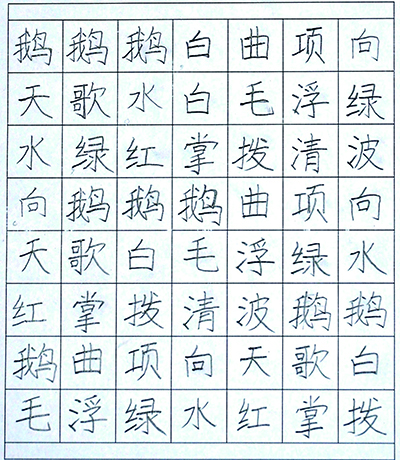 鹅鹅鹅白曲项向
天歌水白毛浮绿
水绿红掌拨清波
向鹅鹅鹅曲项向
天歌白毛浮绿水
红掌拨清波鹅鹅
鹅曲项向天歌白
毛浮绿水红掌拨